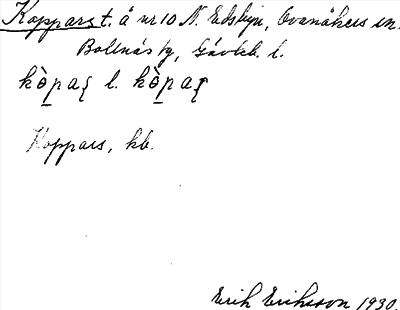 Koppars t. å nr 10 N. Edsbyn, Ovanåkers sn.
Bollnäs tg, Gävleb. l.
kòpaʂ l. kòpaʂ
Koppars, kb.
Erik Eriksson 1930.